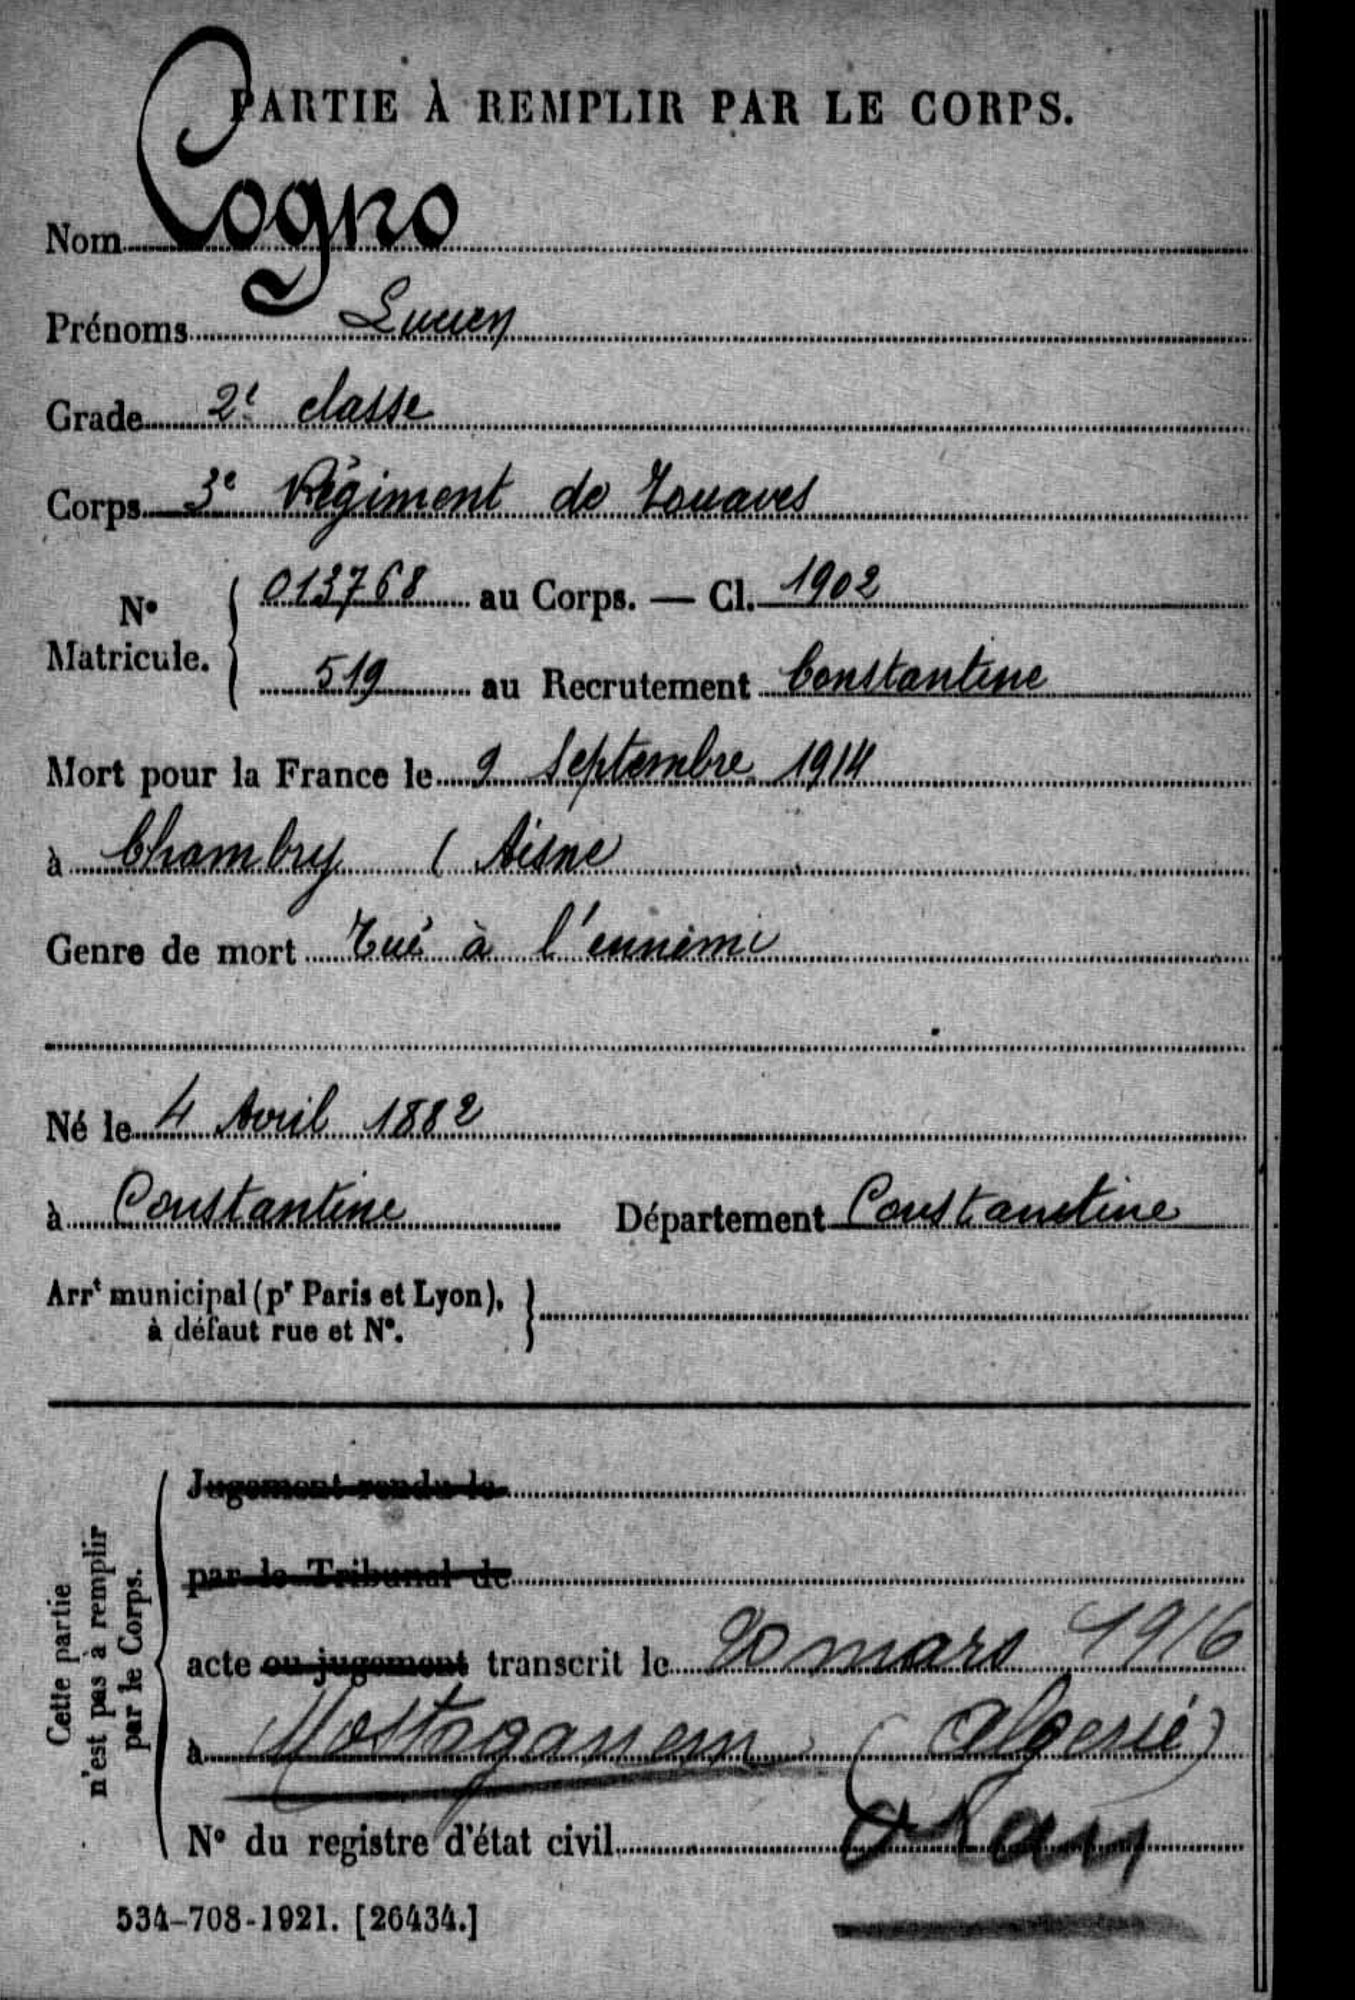 PARTIE À REMPLIR PAR LE CORPS.
Nom Cogno
Prénoms Lucien
Grade 2e classe
Corps 3e Régiment de Zouaves
N° Matricule. { 013768 au Corps. — Cl. 1902
519 au Recrutement Constantine
Mort pour la France le 9 Septembre 1914
à Chambry ( Aisne
Genre de mort Tué à l'ennemi
Né le 4 Avril 1882
à Constantine Département Constantine
Arrt municipal (pr Paris et Lyon), }
à défaut rue et N°.
Cette partie
n'est pas à remplir
par le Corps.
Jugement rendu le
par le Tribunal de
acte ou jugement transcrit le 20 mars 1916
à Mostaganem (Algérie)
Oran
N° du registre d'état civil
534-708-1921. [26434.]